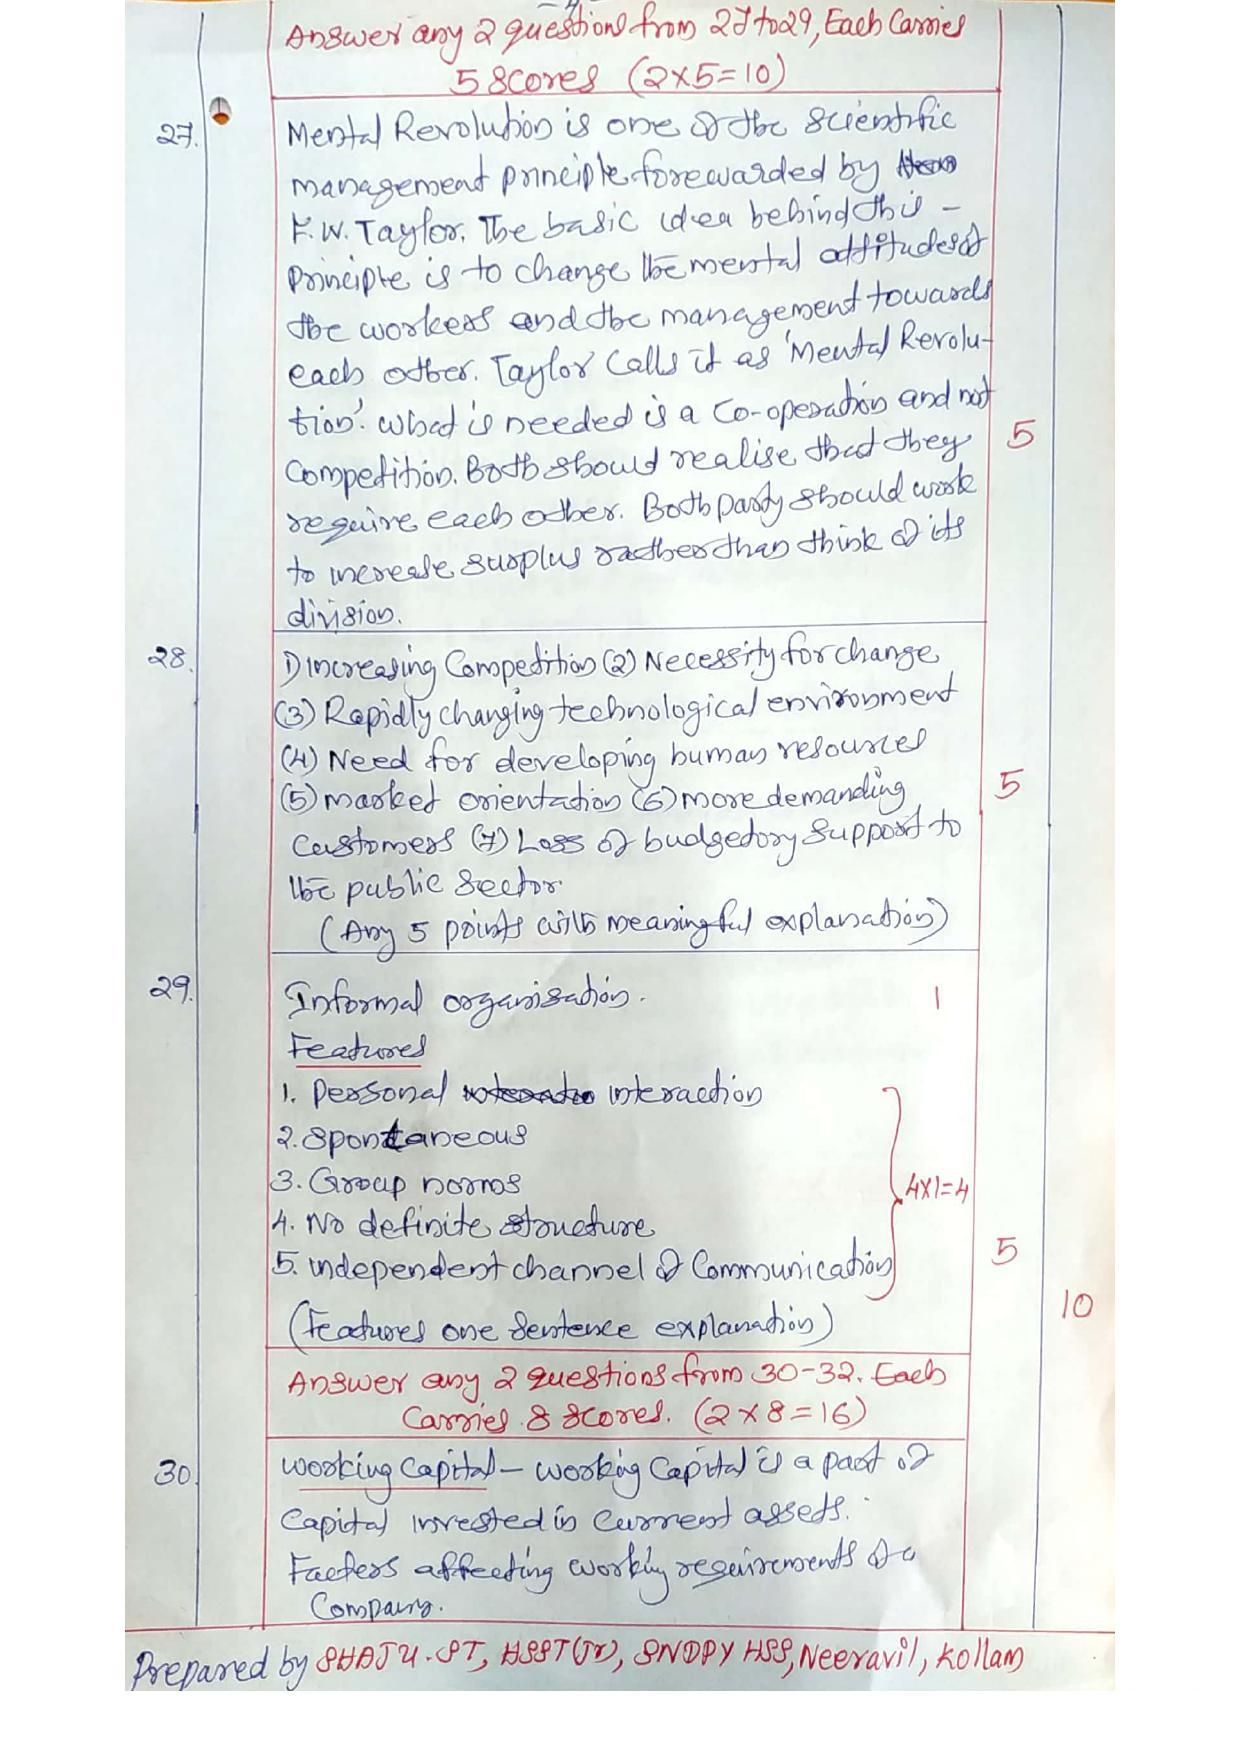 Answer any 2 questions from 27 to 29, Each Carries
5 scores (2x5=10)
27. Mental Revolution is one of the scientific
management principle forewarded by
F.W. Taylor. The basic idea behind this -
Principle is to change the mental attitudes of
the workers and the management towards
each other. Taylor Calls it as 'Mental Revolu-
tion'. What is needed is a Co-operation and not
Competition. Both should realise that they
5
require each other. Both party should work
to increase surplus rather than think of its
division.
28. 1) Increasing Competition (2) Necessity for change
(3) Rapidly changing technological environment
(4) Need for developing human resources
(5) market orientation (6) more demanding
5
Customers (7) Loss of budgetory support to
the public sector.
(Any 5 points with meaningful explanation)
29. Informal organisation. 1
Features
1. Personal interaction
2. Spontaneous
3. Group norms
4x1=4
4. No definite structure
5. independent channel of Communication
5
(Features one sentence explanation)
10
Answer any 2 questions from 30-32. Each
Carries 8 scores. (2x8=16)
30. Working Capital - Working Capital is a part of
Capital invested in Current assets.
Factors affecting working requirements of a
Company.
Prepared by SHAJU.ST, HSST(Jr), SNDPY HSS, Neeravil, Kollam